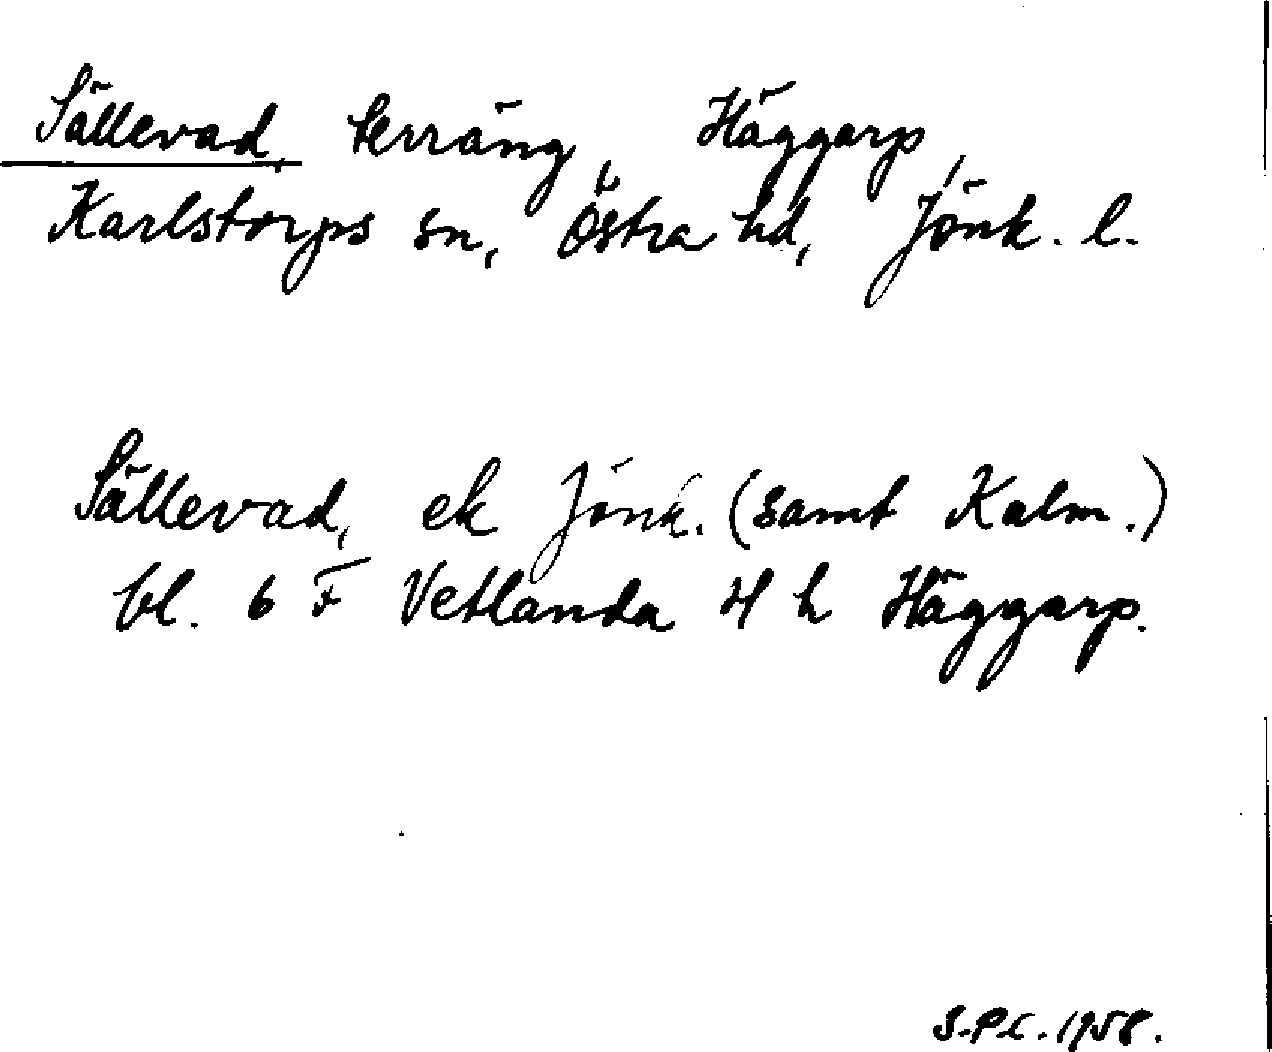 Sällevad, terräng, Häggarp,
Karlstorps sn, Östra hd, Jönk. l.
Sällevad, ek Jönk. (samt Kalm.)
bl. 6 F Vetlanda 4 h Häggarp.
S.P.L. 1958.